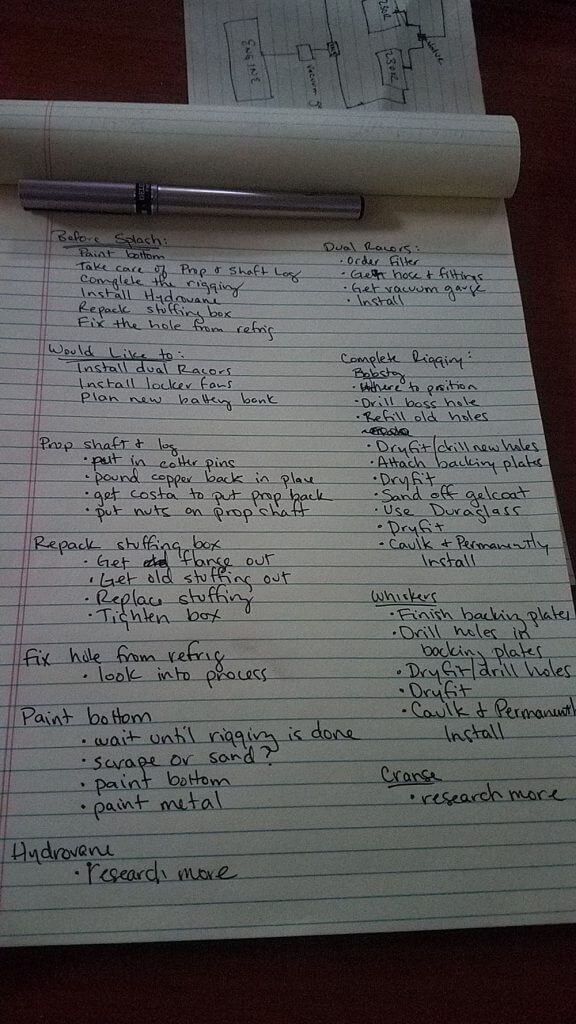 ENGINE
Before Splash:
Paint bottom
Take care of Prop & Shaft Log
Complete the rigging
Install Hydrovane
Repack stuffing box
Fix the hole from refrig
Would Like to:
Install dual Racors
Install locker fans
Plan new battery bank
Prop shaft & log
• put in cotter pins
• pound copper back in place
• get costa to put prop back
• put nuts on prop shaft
Repack stuffing box
• Get flange out
• Get old stuffing out
• Replace stuffing
• Tighten box
Fix hole from refrig
• look into process
Paint bottom
• wait until rigging is done
• scrape or sand?
• paint bottom
• paint metal
Hydrovane
• research more
Dual Racors:
• Order filter
• Get hose & fittings
• Get vacuum gauge
• Install
Complete Rigging:
Bobstay
• Where to position
• Drill boss hole
• Refill old holes
• Dryfit/drill new holes
• Attach backing plates
• Dryfit
• Sand off gelcoat
• Use Duraglass
• Dryfit
• Caulk & Permanently
Install
Whiskers
• Finish backing plates
• Drill holes in
backing plates
• Dryfit/drill holes
• Dryfit
• Caulk & Permanently
Install
Cranse
• research more